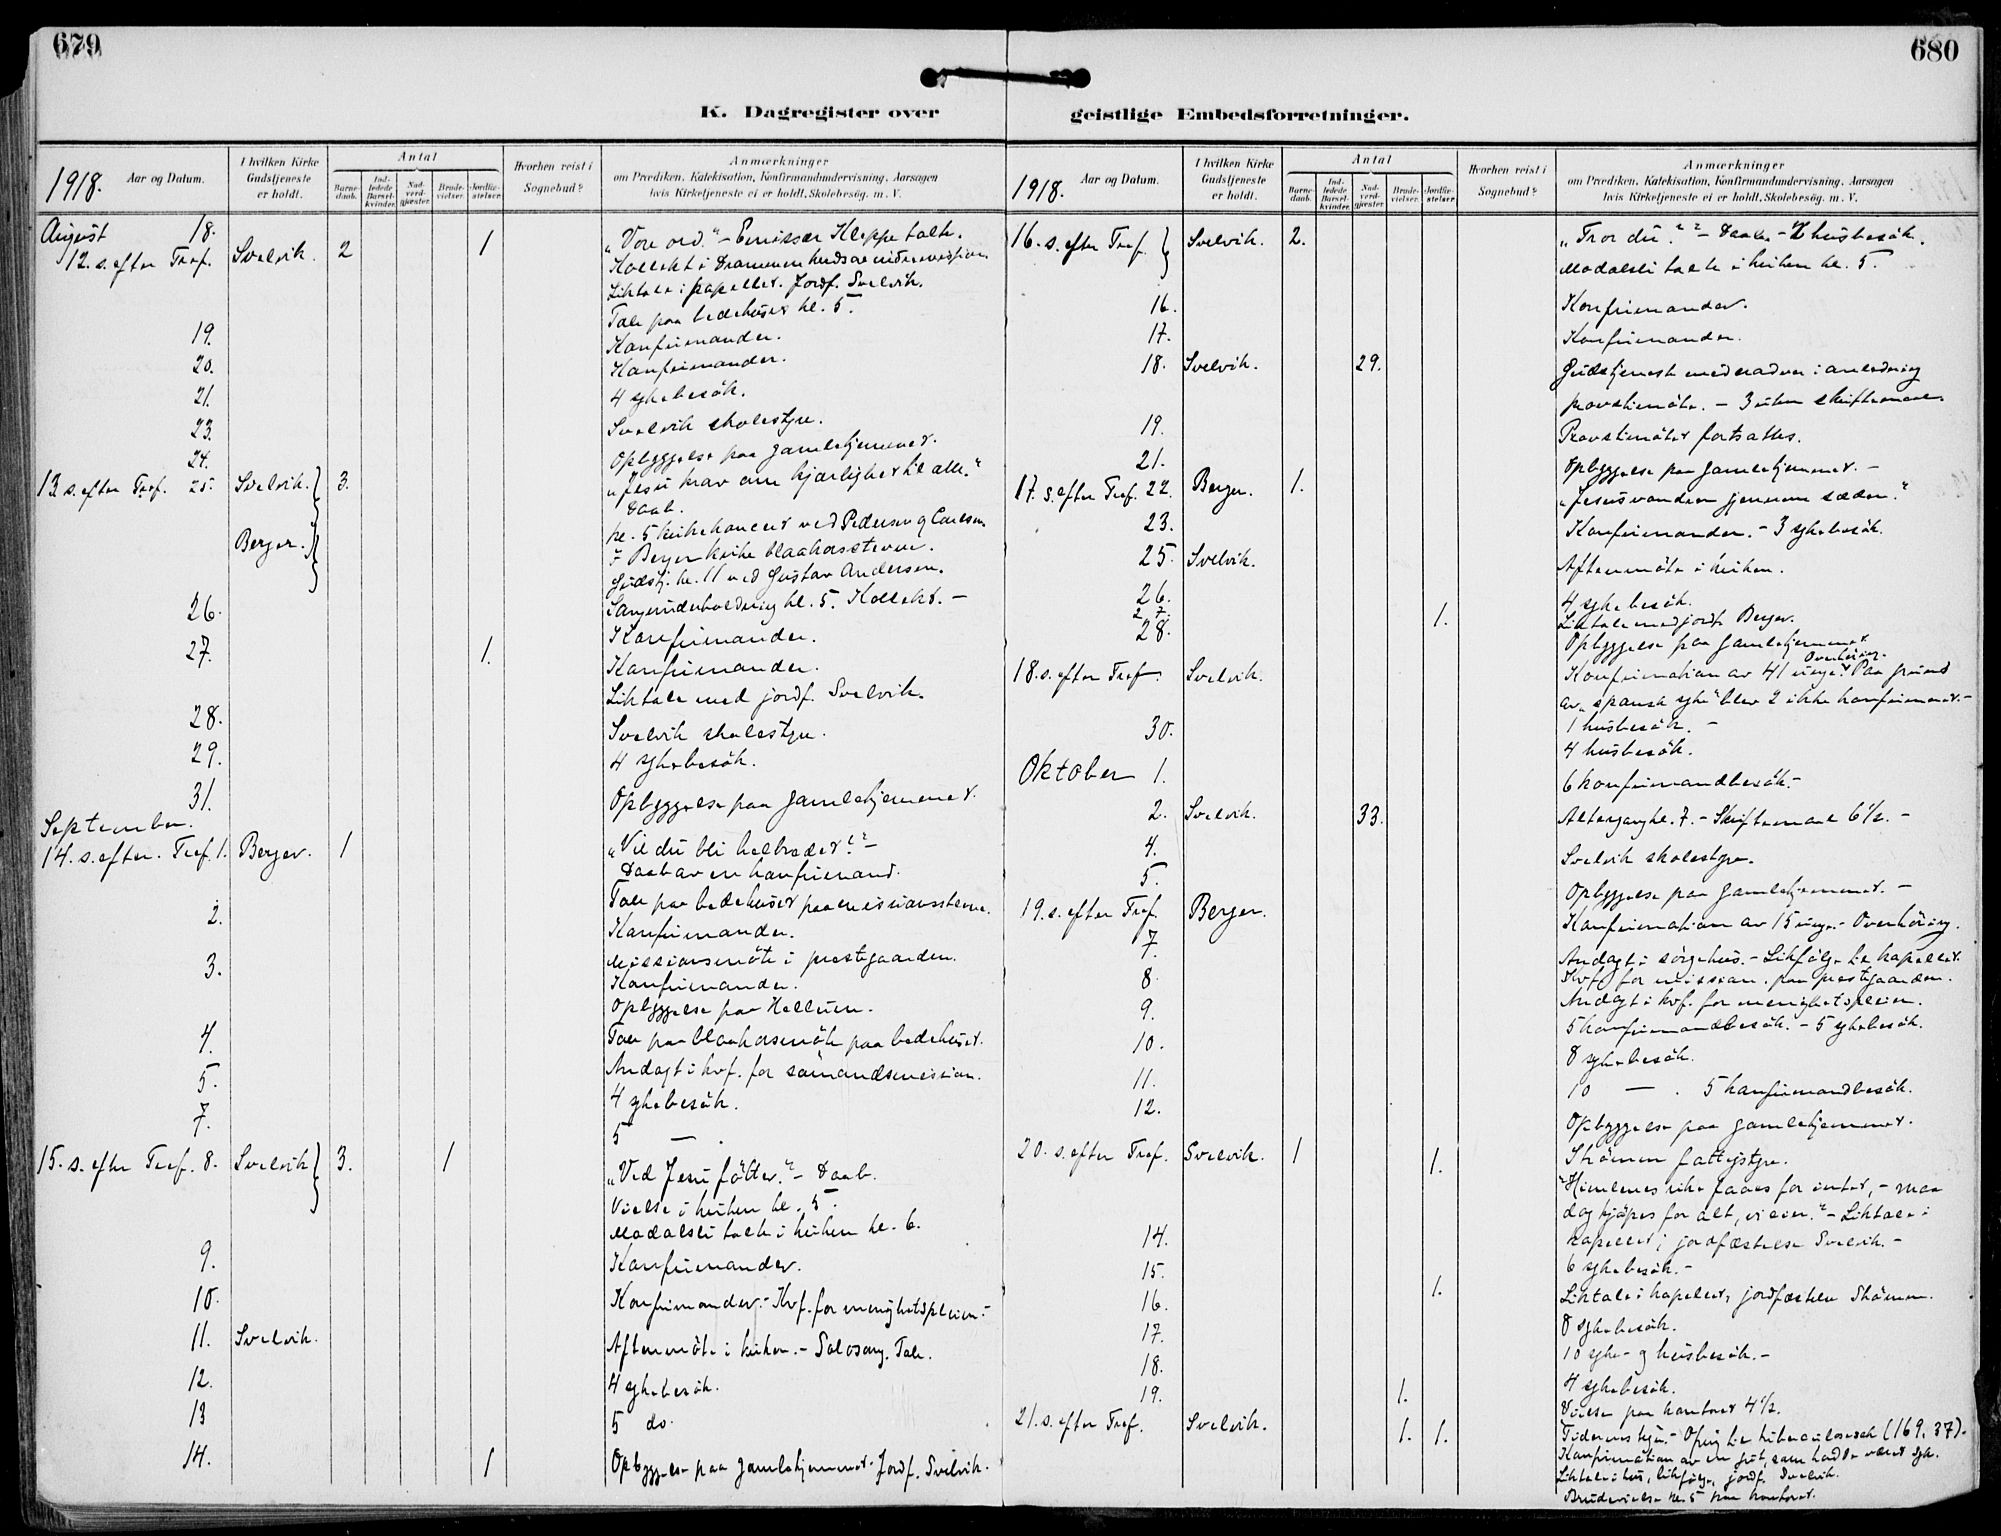 679
K. Dagregister over
1918.
Aar og Datum.
I hvilken Kirke Gudstjeneste er holdt.
Antal
Barnedaab.
Indledede Barselkvinder.
Nadverdgjæster.
Brudevielser.
Jordfæstelser.
Hvorhen reist i Sognebud?
Anmærkninger
om Prædiken, Katekisation, Konfirmandundervisning, Aarsagen
hvis Kirketjeneste ei er holdt, Skolebesøg, m. V.
August 18.
12. s. efter Tref. Svelvik. 2 1 „Vore ord." – Kleppe talte.
Kollekt i Drammens
Liktale i kapellet. Jordf. Svelvik.
Tale paa bedehuset kl. 5.
19. Konfirmander.
20. Konfirmander.
21. 4 sykebesök.
23. Svelvik skolestyre.
24. Opbyggelse paa gamlehjemmet.
13 s. efter Tref. 25. Svelvik. 3. „Jesu krav om kjærlighet til alle."
Daab.
kl. 5 kirkekoncert ved Pedersen og Carlsen.
Berger. I Berger kirke blaakorsstevne.
Gudstj. kl. 11 ved Gustav Andersen.
Sangunderholdning kl. 5. Kollekt. –
26. Konfirmander.
27. 1. Konfirmander.
Liktale med jordf. Svelvik.
28. Svelvik skolestyre.
29. 4 sykebesök.
31. Opbyggelse paa gamlehjemmet.
September.
14. s. efter. Tref. 1. Berger. 1 „Vil du bli helbredet?" –
Daab av en konfirmand.
Tale paa bedehuset paa missionsstevne.
2. Konfirmander.
Missionsmöte i prestegaarden.
3. Konfirmander.
Opbyggelse paa Hellum.
4. Tale paa blaakorsmöte paa bedehuset.
5. Andagt i kvf. for sömandsmission.
7. 4 sykebesök.
5 – .
15. s. efter Tref. 8. Svelvik 3. 1 „Ved Jesu fötter." – Daab.
Vielse i kirken kl. 5.
Modalsli talte i kirken kl. 6.
9. Konfirmander.
10. Konfirmander. – Kvf. for menighetspleien. –
11. Svelvik. Aftenmöte i kirken. – Solosang. Tale.
12. 4 sykebesök.
13 5 do.
14. 1 Opbyggelse paa gamlehjemmet. Jordf. Svelvik.
680
geistlige Embedsforretninger.
1918.
Aar og Datum.
I hvilken Kirke Gudstjeneste er holdt.
Antal
Barnedaab.
Indledede Barselkvinder.
Nadverdgjæster.
Brudevielser.
Jordfæstelser.
Hvorhen reist i Sognebud?
Anmærkninger
om Prædiken, Katekisation, Konfirmandundervisning, Aarsagen
hvis Kirketjeneste ei er holdt, Skolebesøg, m. V.
16. s. efter Tref. Svelvik. 2. „Tror du?" – Daab. – 2 husbesök.
Modalsli talte i kirken kl. 5.
16. Konfirmander.
17. Konfirmander.
18. Svelvik. 29. Gudstjeneste med nadver i anledning
provstimöte. – 3 uten skriftemaal.
19. Provstimötet fortsattes.
21. Opbyggelse paa gamlehjemmet. –
17. s. efter Tref. 22. Berger. 1. „Jesus vandrer gjennem sæden."
23. Konfirmander. – 3 sykebesök.
25. Svelvik. Aftenmöte i kirken.
26. 4 sykebesök.
27. 1. Liktale med jordf. Berger.
28. Opbyggelse paa gamlehjemmet.
18. s. efter Tref. Svelvik. Konfirmation av 41 unge. Overhöring. Paa grund
av „spansk syke" blev 2 ikke konfirmeret. –
1 husbesök. –
30. 4 husbesök.
Oktober 1. 6 konfirmandbesök. –
2. Svelvik. 33. Altergang kl. 7. – Skriftemaal 6 1/2. –
4. Svelvik skolestyre.
5. Opbyggelse paa gamlehjemmet. –
19. s. efter Tref. Berger. Konfirmation av 15 unge. – Overhöring.
7. Andagt i sörgehus. – Likfölge til kapellet.
8. Kvf. for mission. paa prestegaarden.
9. Andagt i kvf. for menighetspleien.
5 konfirmandbesök. – 5 sykebesök.
10. 8 sykebesök.
11. 10 – . 5 konfirmandbesök.
12. Opbyggelse paa gamlehjemmet.
20. s. efter Tref. Svelvik. 1 1. Strömm fattigstyre.
"Himlenes rike faaes for intet, – maa
dog kjöpes for alt, vi eier." – Liktale i
kapellet; jordfæstelse Svelvik. –
14. 6 sykebesök. –
15. 1. Liktale i kapellet, jordfæstelse Strömm.
16. 8 sykebesök.
17. 10 syke- og husbesök. –
18. 4 sykebesök.
19. 1. Vielse paa kontoret 4 1/2.
21. s. efter Tref. Svelvik. 1. 1. Tidernes tegn. – Ofring til tuberkulosesak (169.37).
Konfirmation av en gut, som hadde været syk.
Liktale i hus, likfölge, jordf. Svelvik.
Brudevielse kl. 5 paa kontoret.